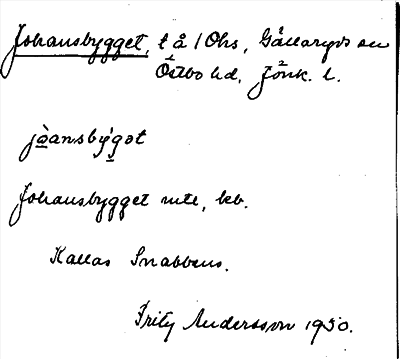 Johansbygget, t å 1 Ohs, Gällaryds sn
Östbo hd, Jönk. l.
jòansbýgət
Johansbygget mtl, beb.
Kallas Snabbens.
Fritz Andersson 1930.